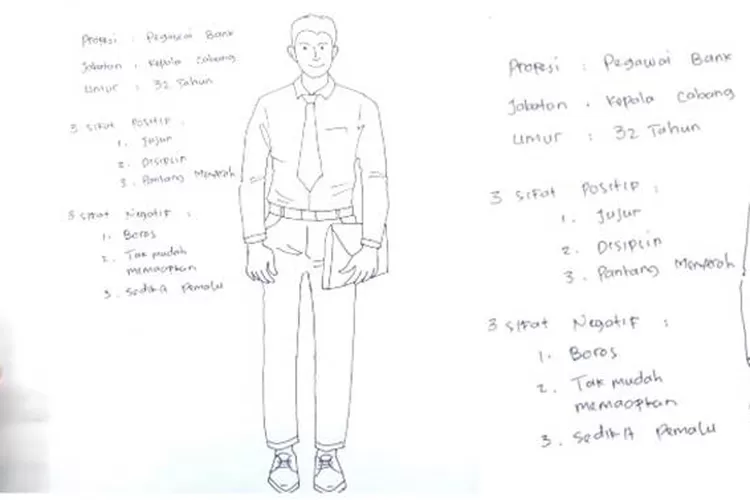 Profesi : Pegawai Bank
Jabatan : Kepala Cabang
Umur : 32 Tahun
3 Sifat Positif :
1. Jujur
2. Disiplin
3. Pantang Menyerah
3 Sifat Negatif :
1. Boros
2. Tak mudah
memaafkan
3. Sedikit Pemalu
Profesi : Pegawai Bank
Jabatan : Kepala Cabang
Umur : 32 Tahun
3 Sifat Positif :
1. Jujur
2. Disiplin
3. Pantang Menyerah
3 Sifat Negatif :
1. Boros
2. Tak mudah
memaafkan
3. Sedikit Pemalu